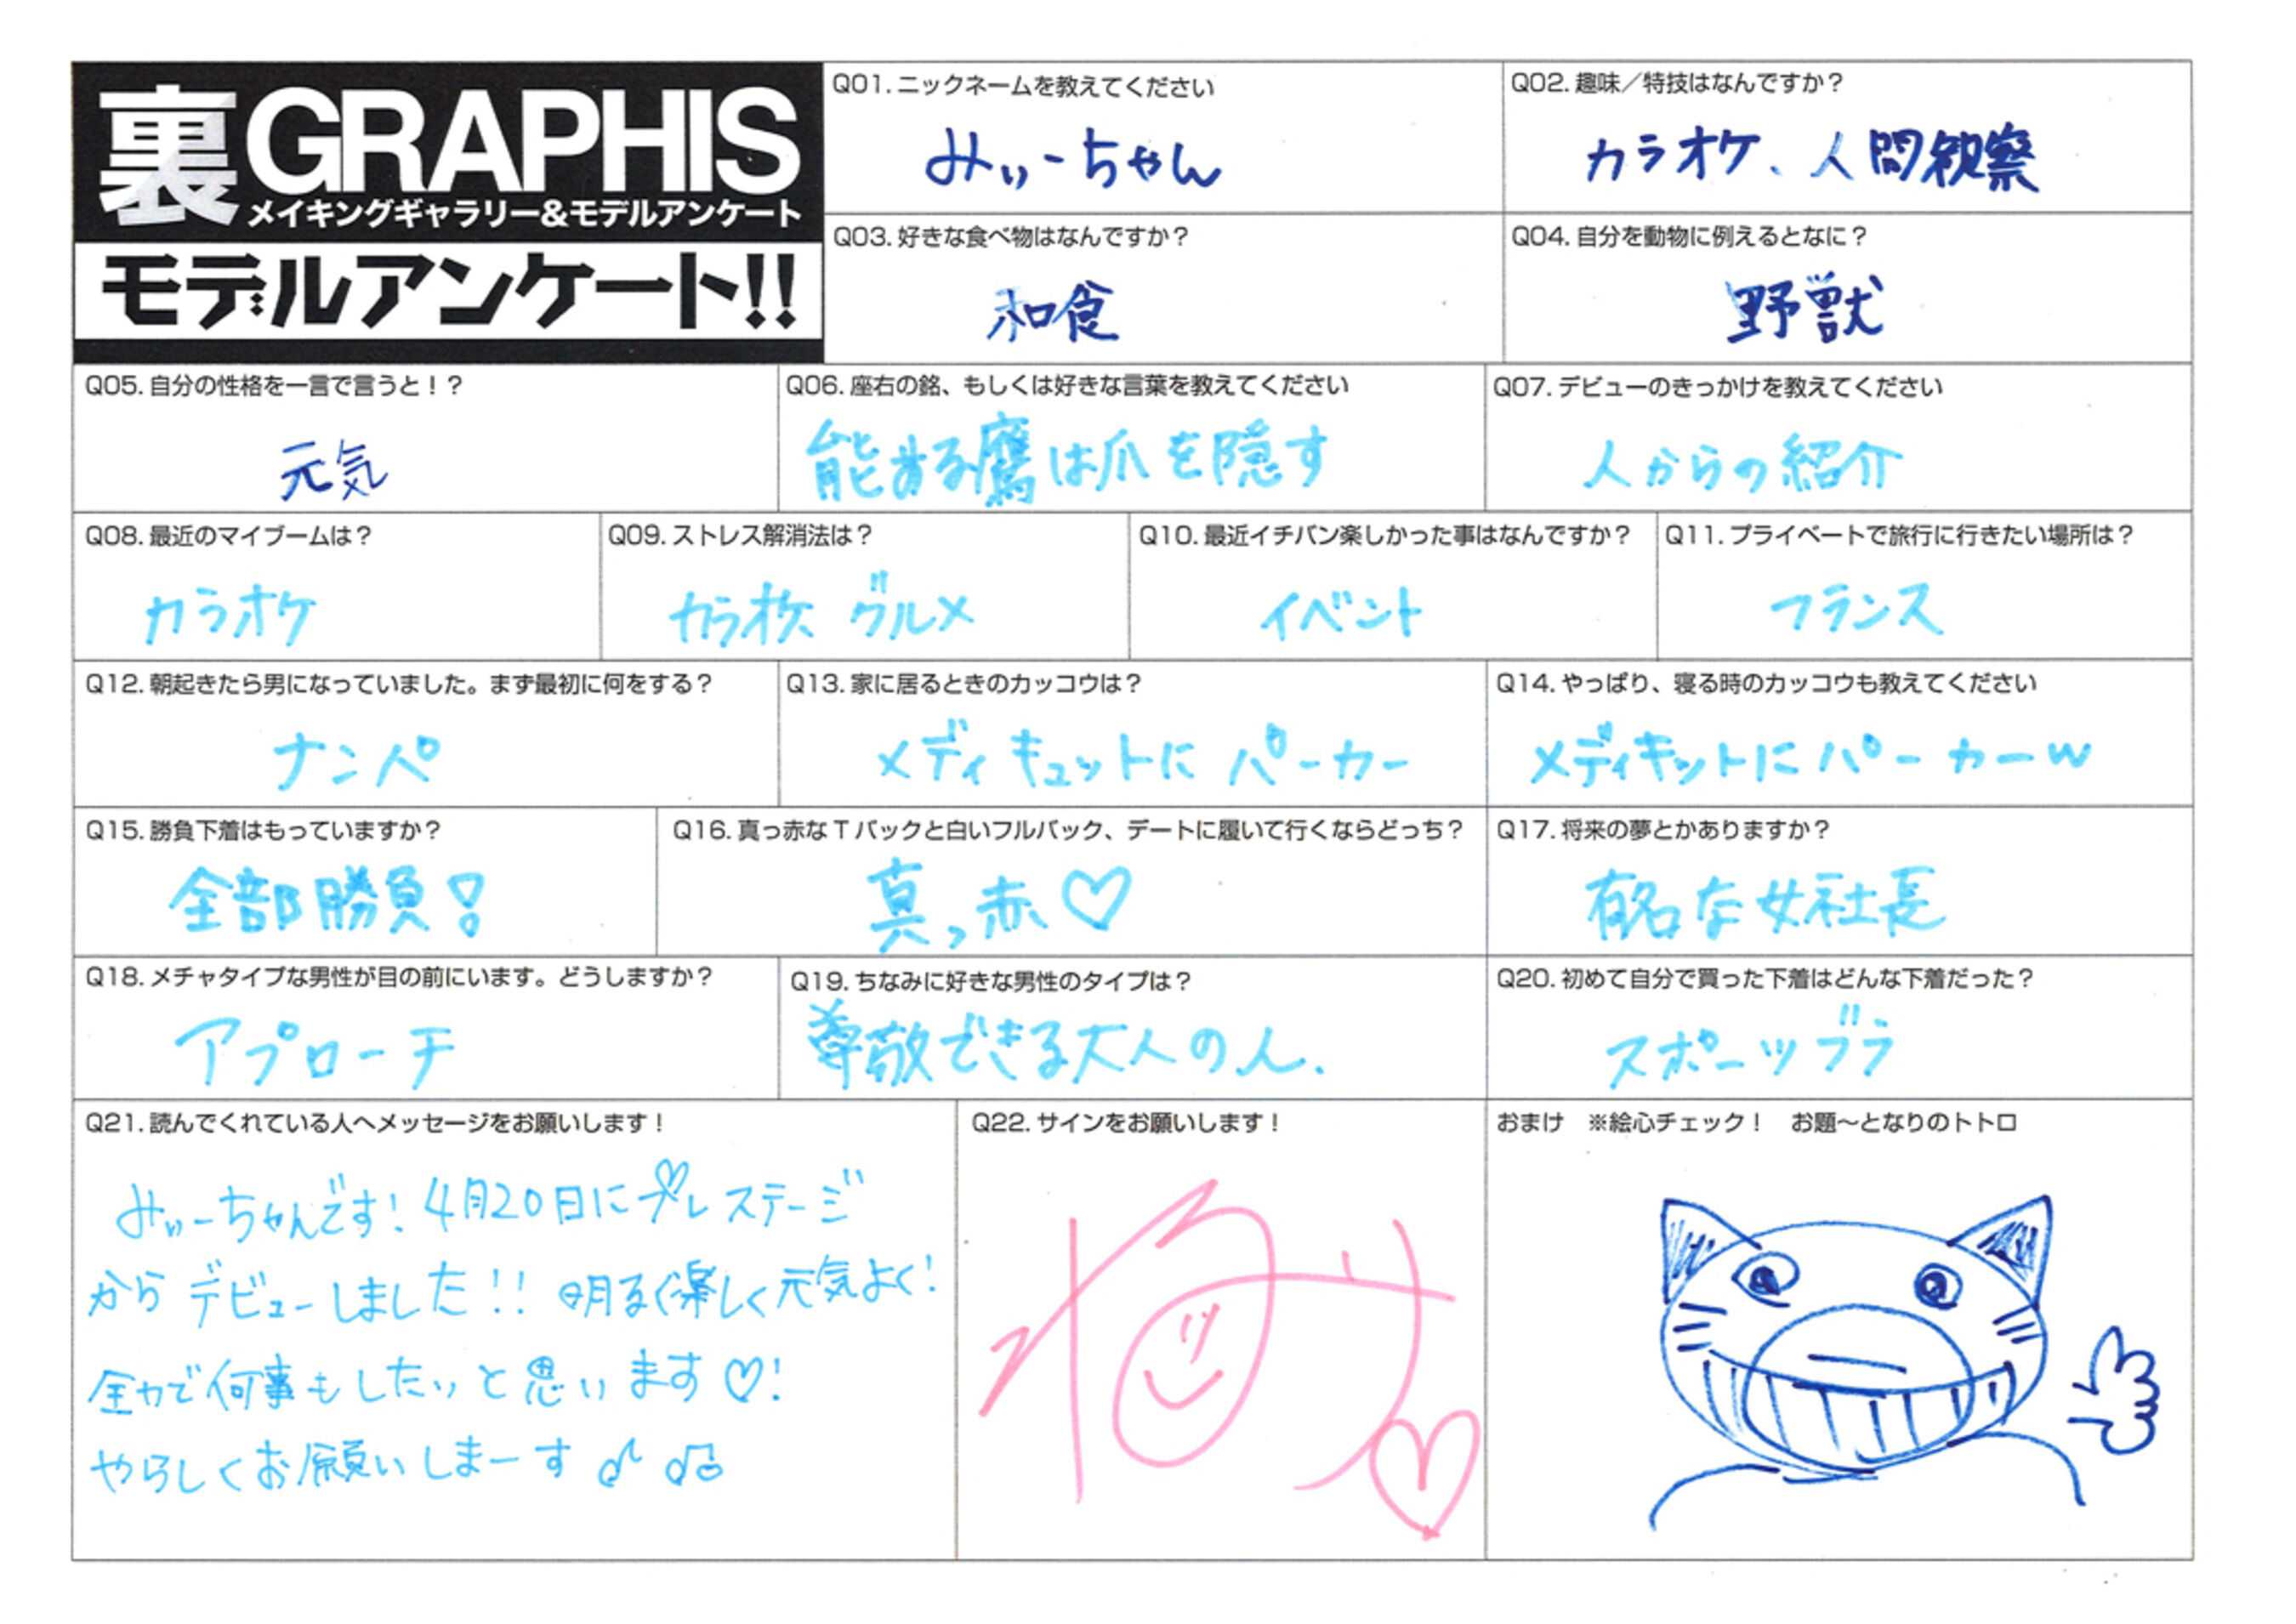 裏GRAPHIS
メイキングギャラリー&モデルアンケート
モデルアンケート!!
Q01. ニックネームを教えてください
みぃーちゃん
Q02. 趣味／特技はなんですか？
カラオケ、人間観察
Q03. 好きな食べ物はなんですか？
和食
Q04. 自分を動物に例えるとなに？
野獣
Q05. 自分の性格を一言で言うと！？
元気
Q06. 座右の銘、もしくは好きな言葉を教えてください
能ある鷹は爪を隠す
Q07. デビューのきっかけを教えてください
人からの紹介
Q08. 最近のマイブームは？
カラオケ
Q09. ストレス解消法は？
カラオケ グルメ
Q10. 最近イチバン楽しかった事はなんですか？
イベント
Q11. プライベートで旅行に行きたい場所は？
フランス
Q12. 朝起きたら男になっていました。まず最初に何をする？
ナンペ
Q13. 家に居るときのカッコウは？
メディキュットにパーカー
Q14. やっぱり、寝る時のカッコウも教えてください
メディキットにパーカーw
Q15. 勝負下着はもっていますか？
全部勝負!
Q16. 真っ赤なTバックと白いフルバック、デートに履いて行くならどっち？
真っ赤♡
Q17. 将来の夢とかありますか？
有名な女社長
Q18. メチャタイプな男性が目の前にいます。どうしますか？
アプローチ
Q19. ちなみに好きな男性のタイプは？
尊敬できる大人の人.
Q20. 初めて自分で買った下着はどんな下着だった？
スポーツブラ
Q21. 読んでくれている人へメッセージをお願いします！
みぃーちゃんです! 4月20日にプレステージ
からデビューしました!! 明るく楽しく元気よく!
全力で何事もしたいと思います♡!
やらしくお願いしまーす♪ ♫
Q22. サインをお願いします！
おまけ　※絵心チェック！　お題〜となりのトトロ